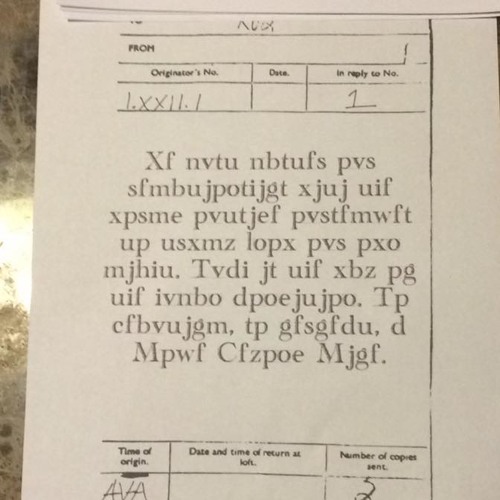 FROM
Originator's No. Date. In reply to No.
1.XXII.1 1
Xf nvtu nbtufs pvs
sfmbujpotijgt xjuj uif
xpsme pvutjef pvstfmwft
up usxmz lopx pvs pxo
mjhiu. Tvdi jt uif xbz pg
uif ivnbo dpoejujpo. Tp
cfbvujgm, tp gfsgfdu, d
Mpwf Cfzpoe Mjgf.
Time of origin. Date and time of return at loft. Number of copies sent.
AVA 2